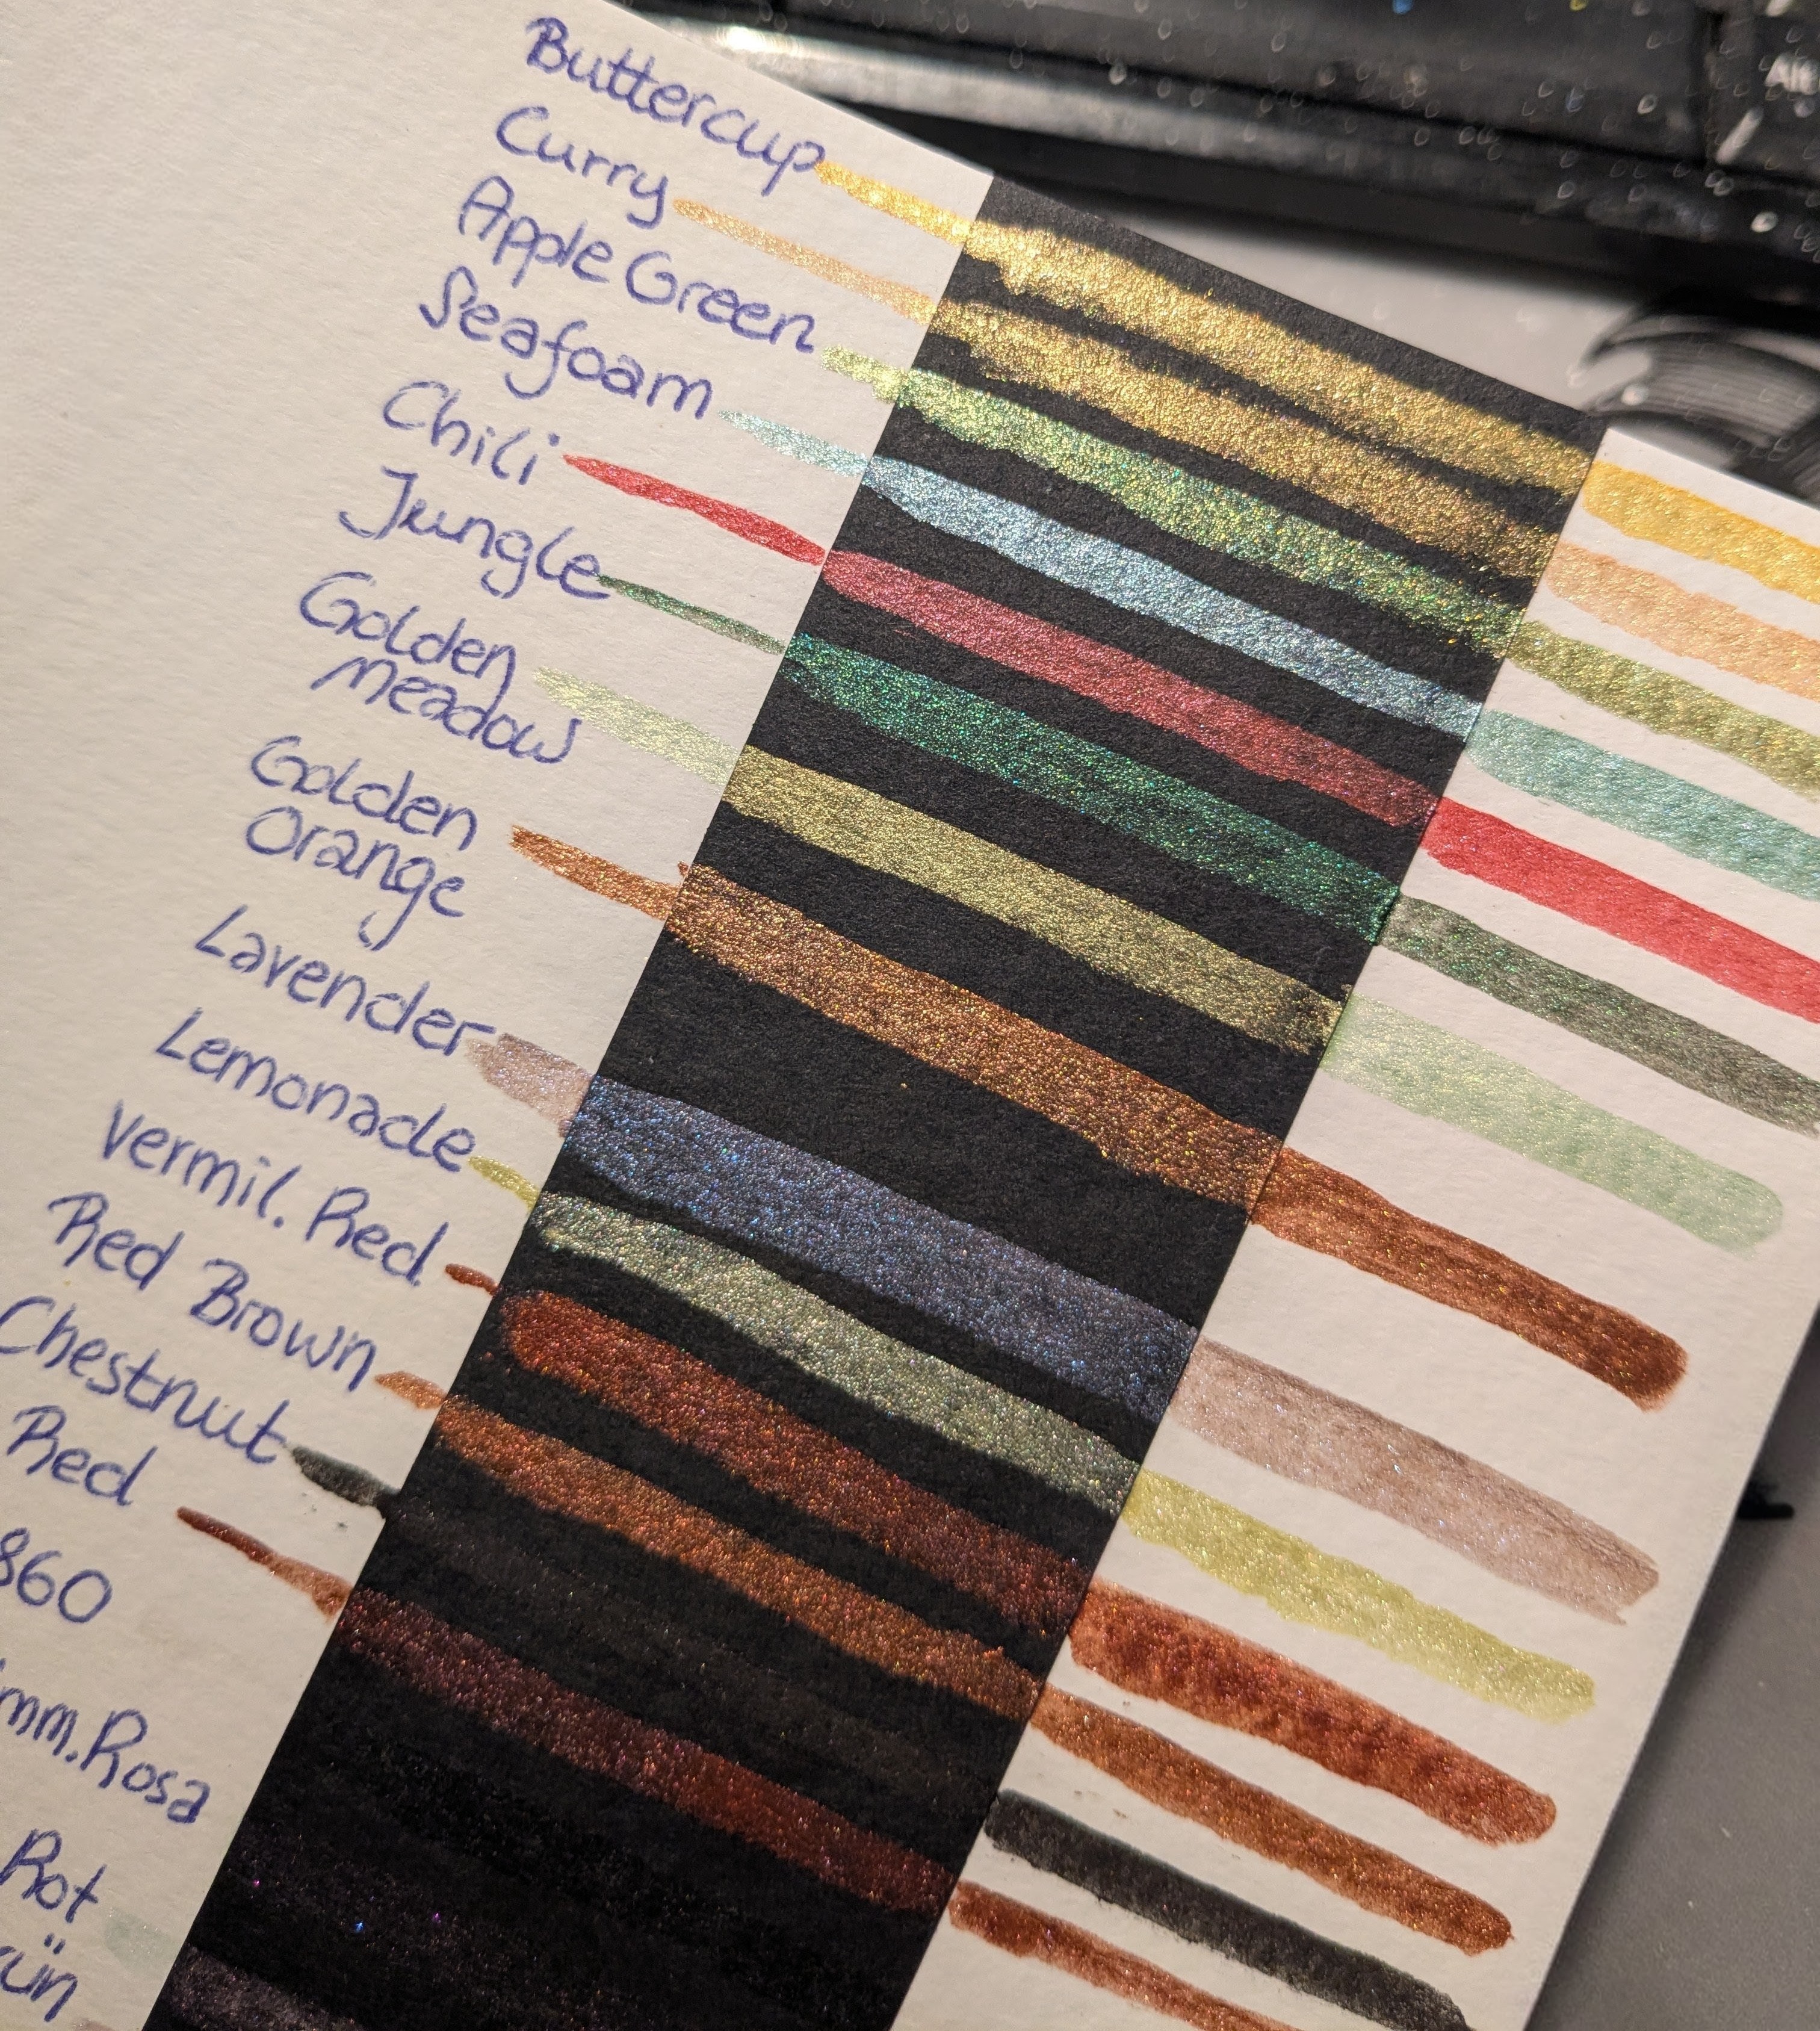 Buttercup
Curry
Apple Green
Seafoam
Chili
Jungle
Golden
Meadow
Golden
Orange
Lavender
Lemonade
Vermil. Red
Red Brown
Chestnut
Red
860
Rosa
Rot
Alt